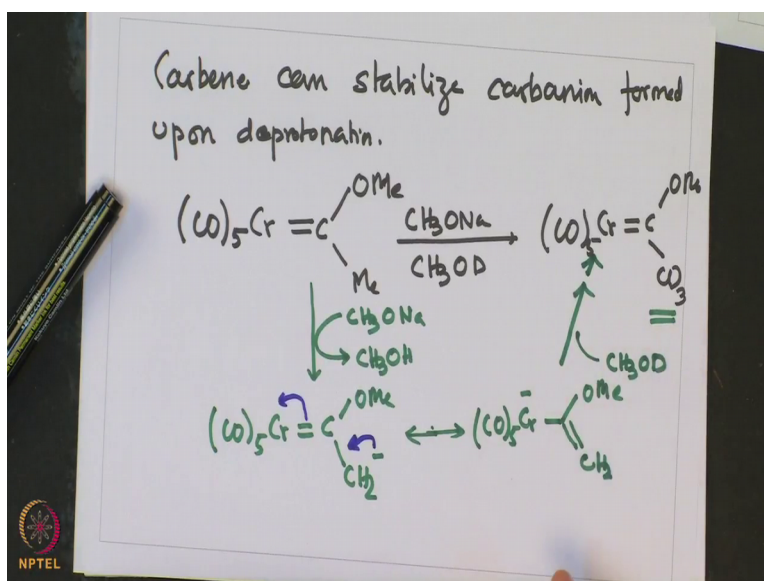 Carbene can stabilize carbanim formed
upon deprotonatin.
(CO)5Cr=C
OMe
Me
CH3ONa
CH3OD
(CO)5Cr=C
OMe
CD3
CH3ONa
CH3OH
CH3OD
(CO)5Cr=C
OMe
CH2-
(CO)5Cr-
OMe
CH2
NPTEL